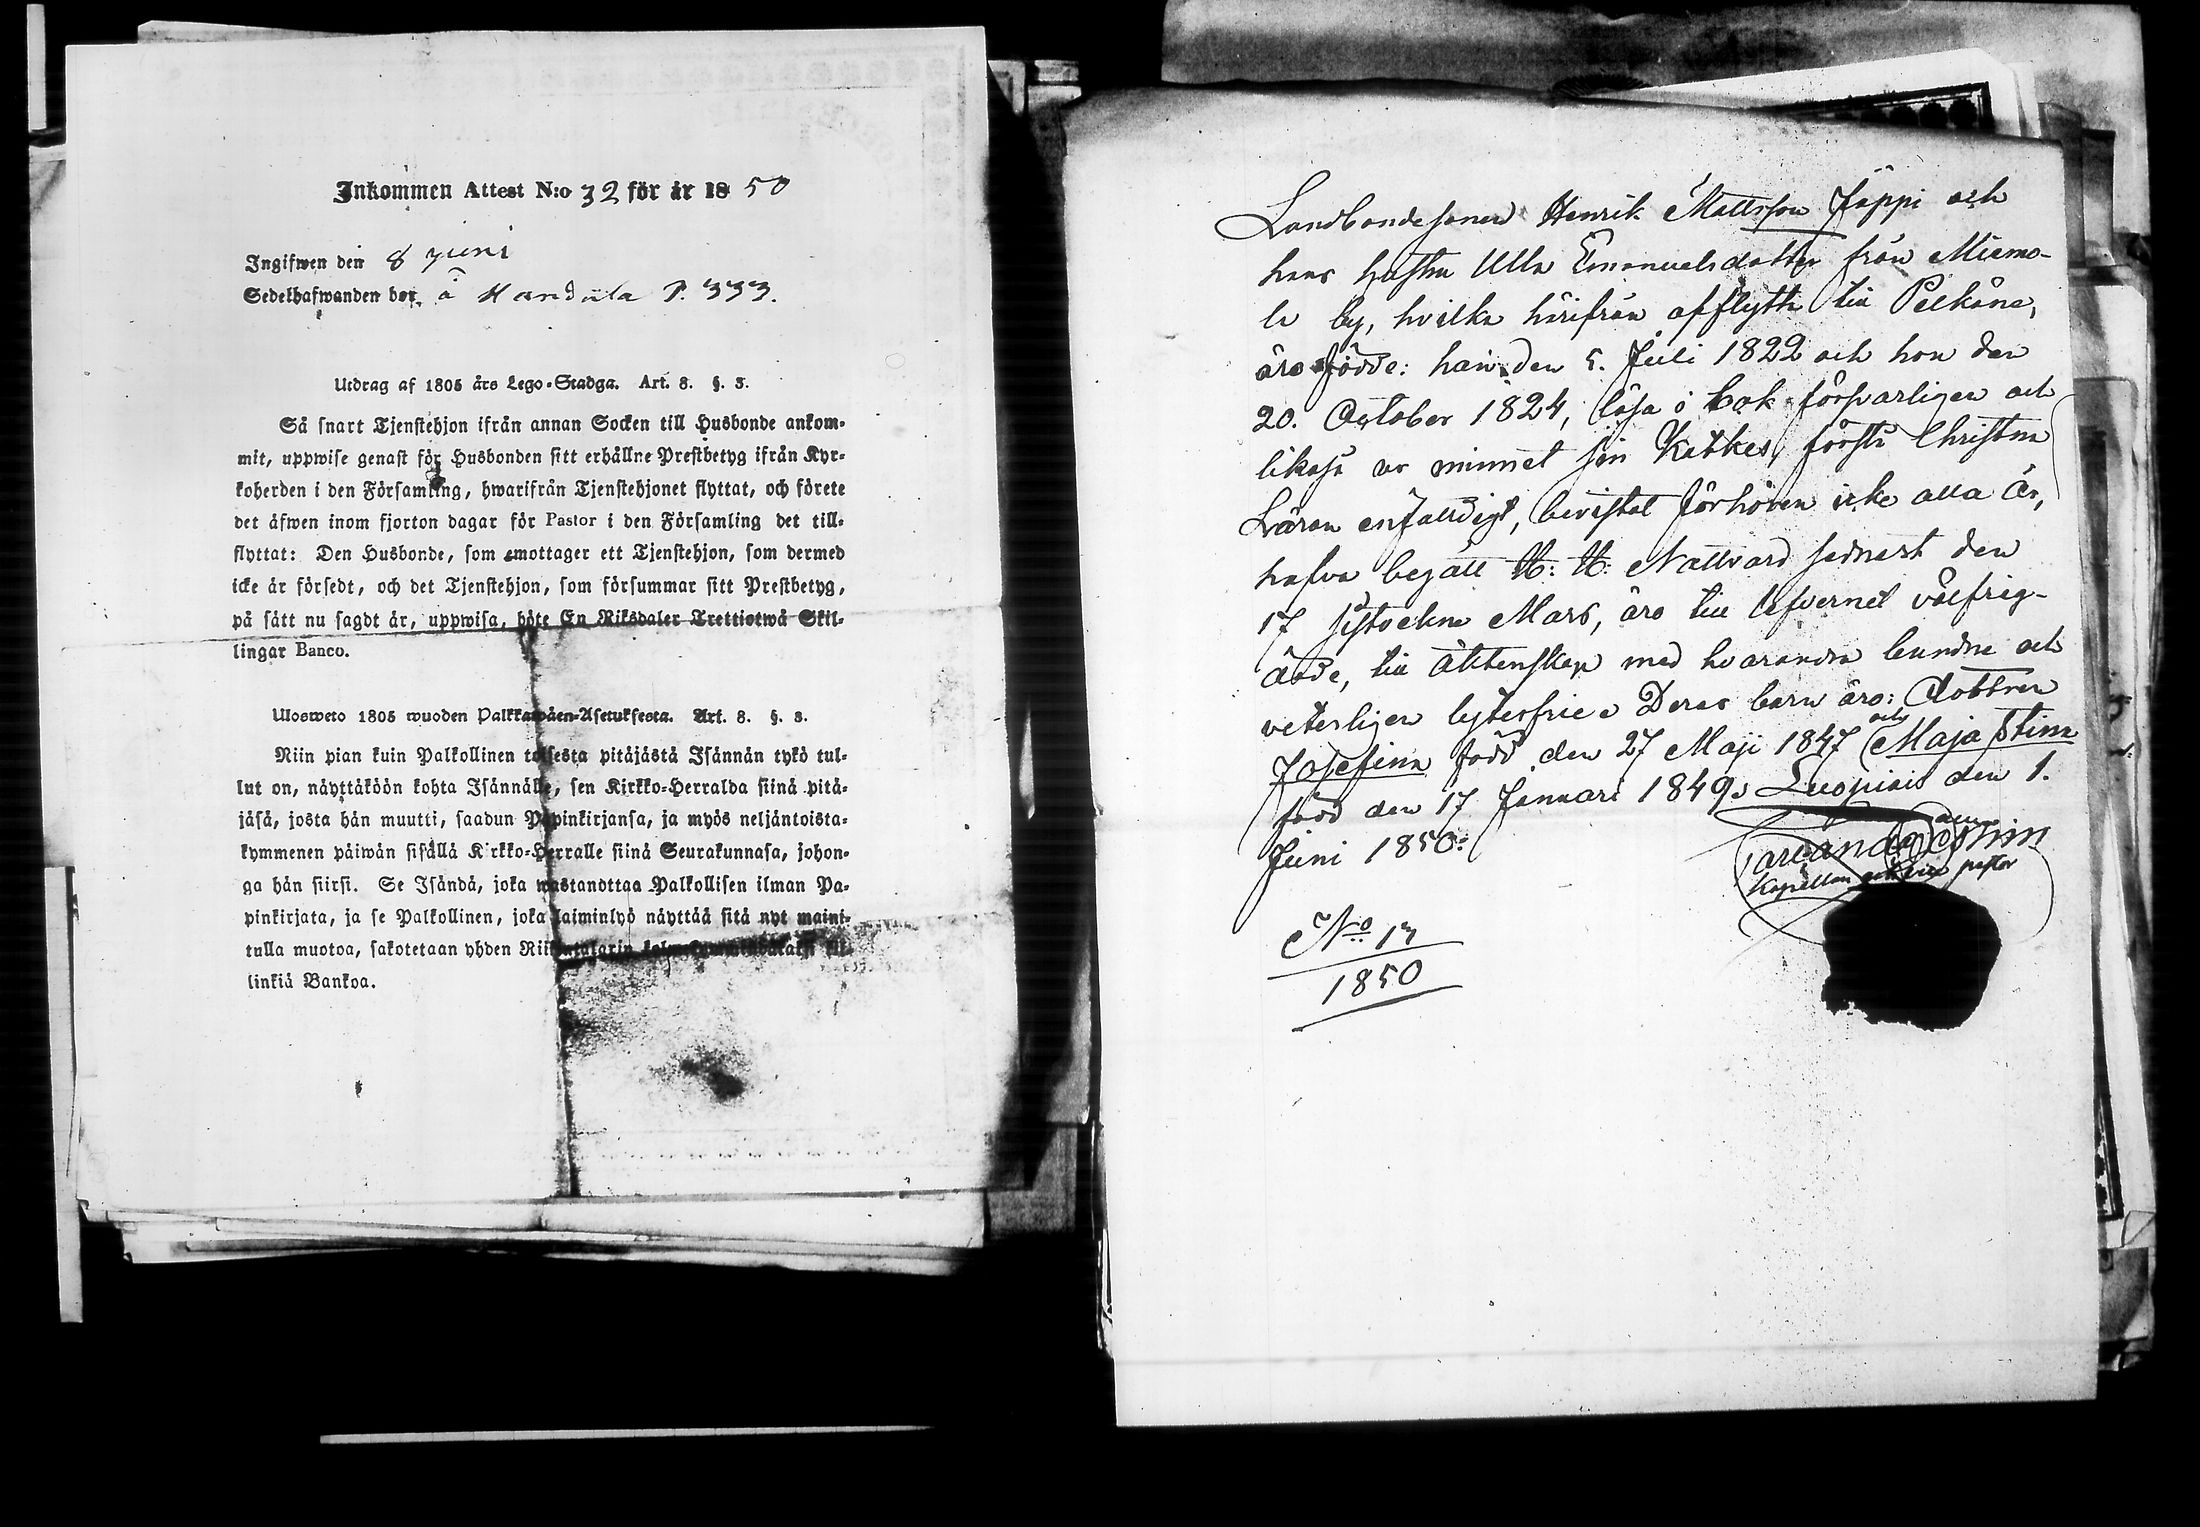 Inkommen Attest N:o 32 för år 1850
Ingifwen den 8 Juni
Sedelhafwanden bor å Handula P. 333.
Utdrag af 1805 års Lego-Stadga. Art. 8. §. 3.
Så snart Tjenstehjon ifrån annan Socken till Husbonde ankom-
mit, uppwise genast för Husbonden sitt erhållne Prestbetyg ifrån Kyr-
koherden i den Församling, hwarifrån Tjenstehjonet flyttat, och förete
det äfwen inom fjorton dagar för Pastor i den Församling det till-
flyttat: Den Husbonde, som emottager ett Tjenstehjon, som dermed
icke är försedt, och det Tjenstehjon, som försummar sitt Prestbetyg,
på sätt nu sagdt är, uppwisa, böte En Riksdaler Trettiotwå Skil-
lingar Banco.
Ulosweto 1805 wuoden Palkkawäen-Asetuksesta. Art. 8. §. 3.
Niin pian kuin Palkollinen toisesta pitäjästä Isännän tykö tul-
lut on, näyttäköön kohta Isännälle, sen Kirkko-Herralda siinä pitä-
jäsä, josta hän muutti, saadun Papinkirjansa, ja myös neljäntoista-
kymmenen päiwän sisällä Kirkko-Herralle siinä Seurakunnasa, johon-
ga hän siirsi. Se Isändä, joka wastanottaa Palkollisen ilman Pa-
pinkirjata, ja se Palkollinen, joka laiminlyö näyttää sitä nyt maini-
tulla muotoa, sakotetaan yhden Riikintalarin kil-
linkiä Bankoa.
Landbondesonen Henrik Mattsson Jäppi och
hans hustru Ulla Emanuelsdotter från Miemo-
la by, hvilka härifrån afflytta till Pelkäne,
äro födde: han den 5. Juli 1822 och hon den
20. October 1824, läsa i bok försvarligen och
likaså ur minnet sin Katkes, förstå Christna
Läran enfaldigt, bevistat förhören icke alla år,
hafva begått H: H: Nattvard sednast den
17 sistvekne Mars, äro till lefvernet välfrej-
dade, till äktenskap med hvarandra bundne och
veterligen lytesfrie. Deras barn äro: döttrer
Josefina född den 27 Maji 1847 och Maja Stina
född den 17 Januari 1849. Luopiois den 1.
Juni 1850.
Kapellan pastor
No 17
1850